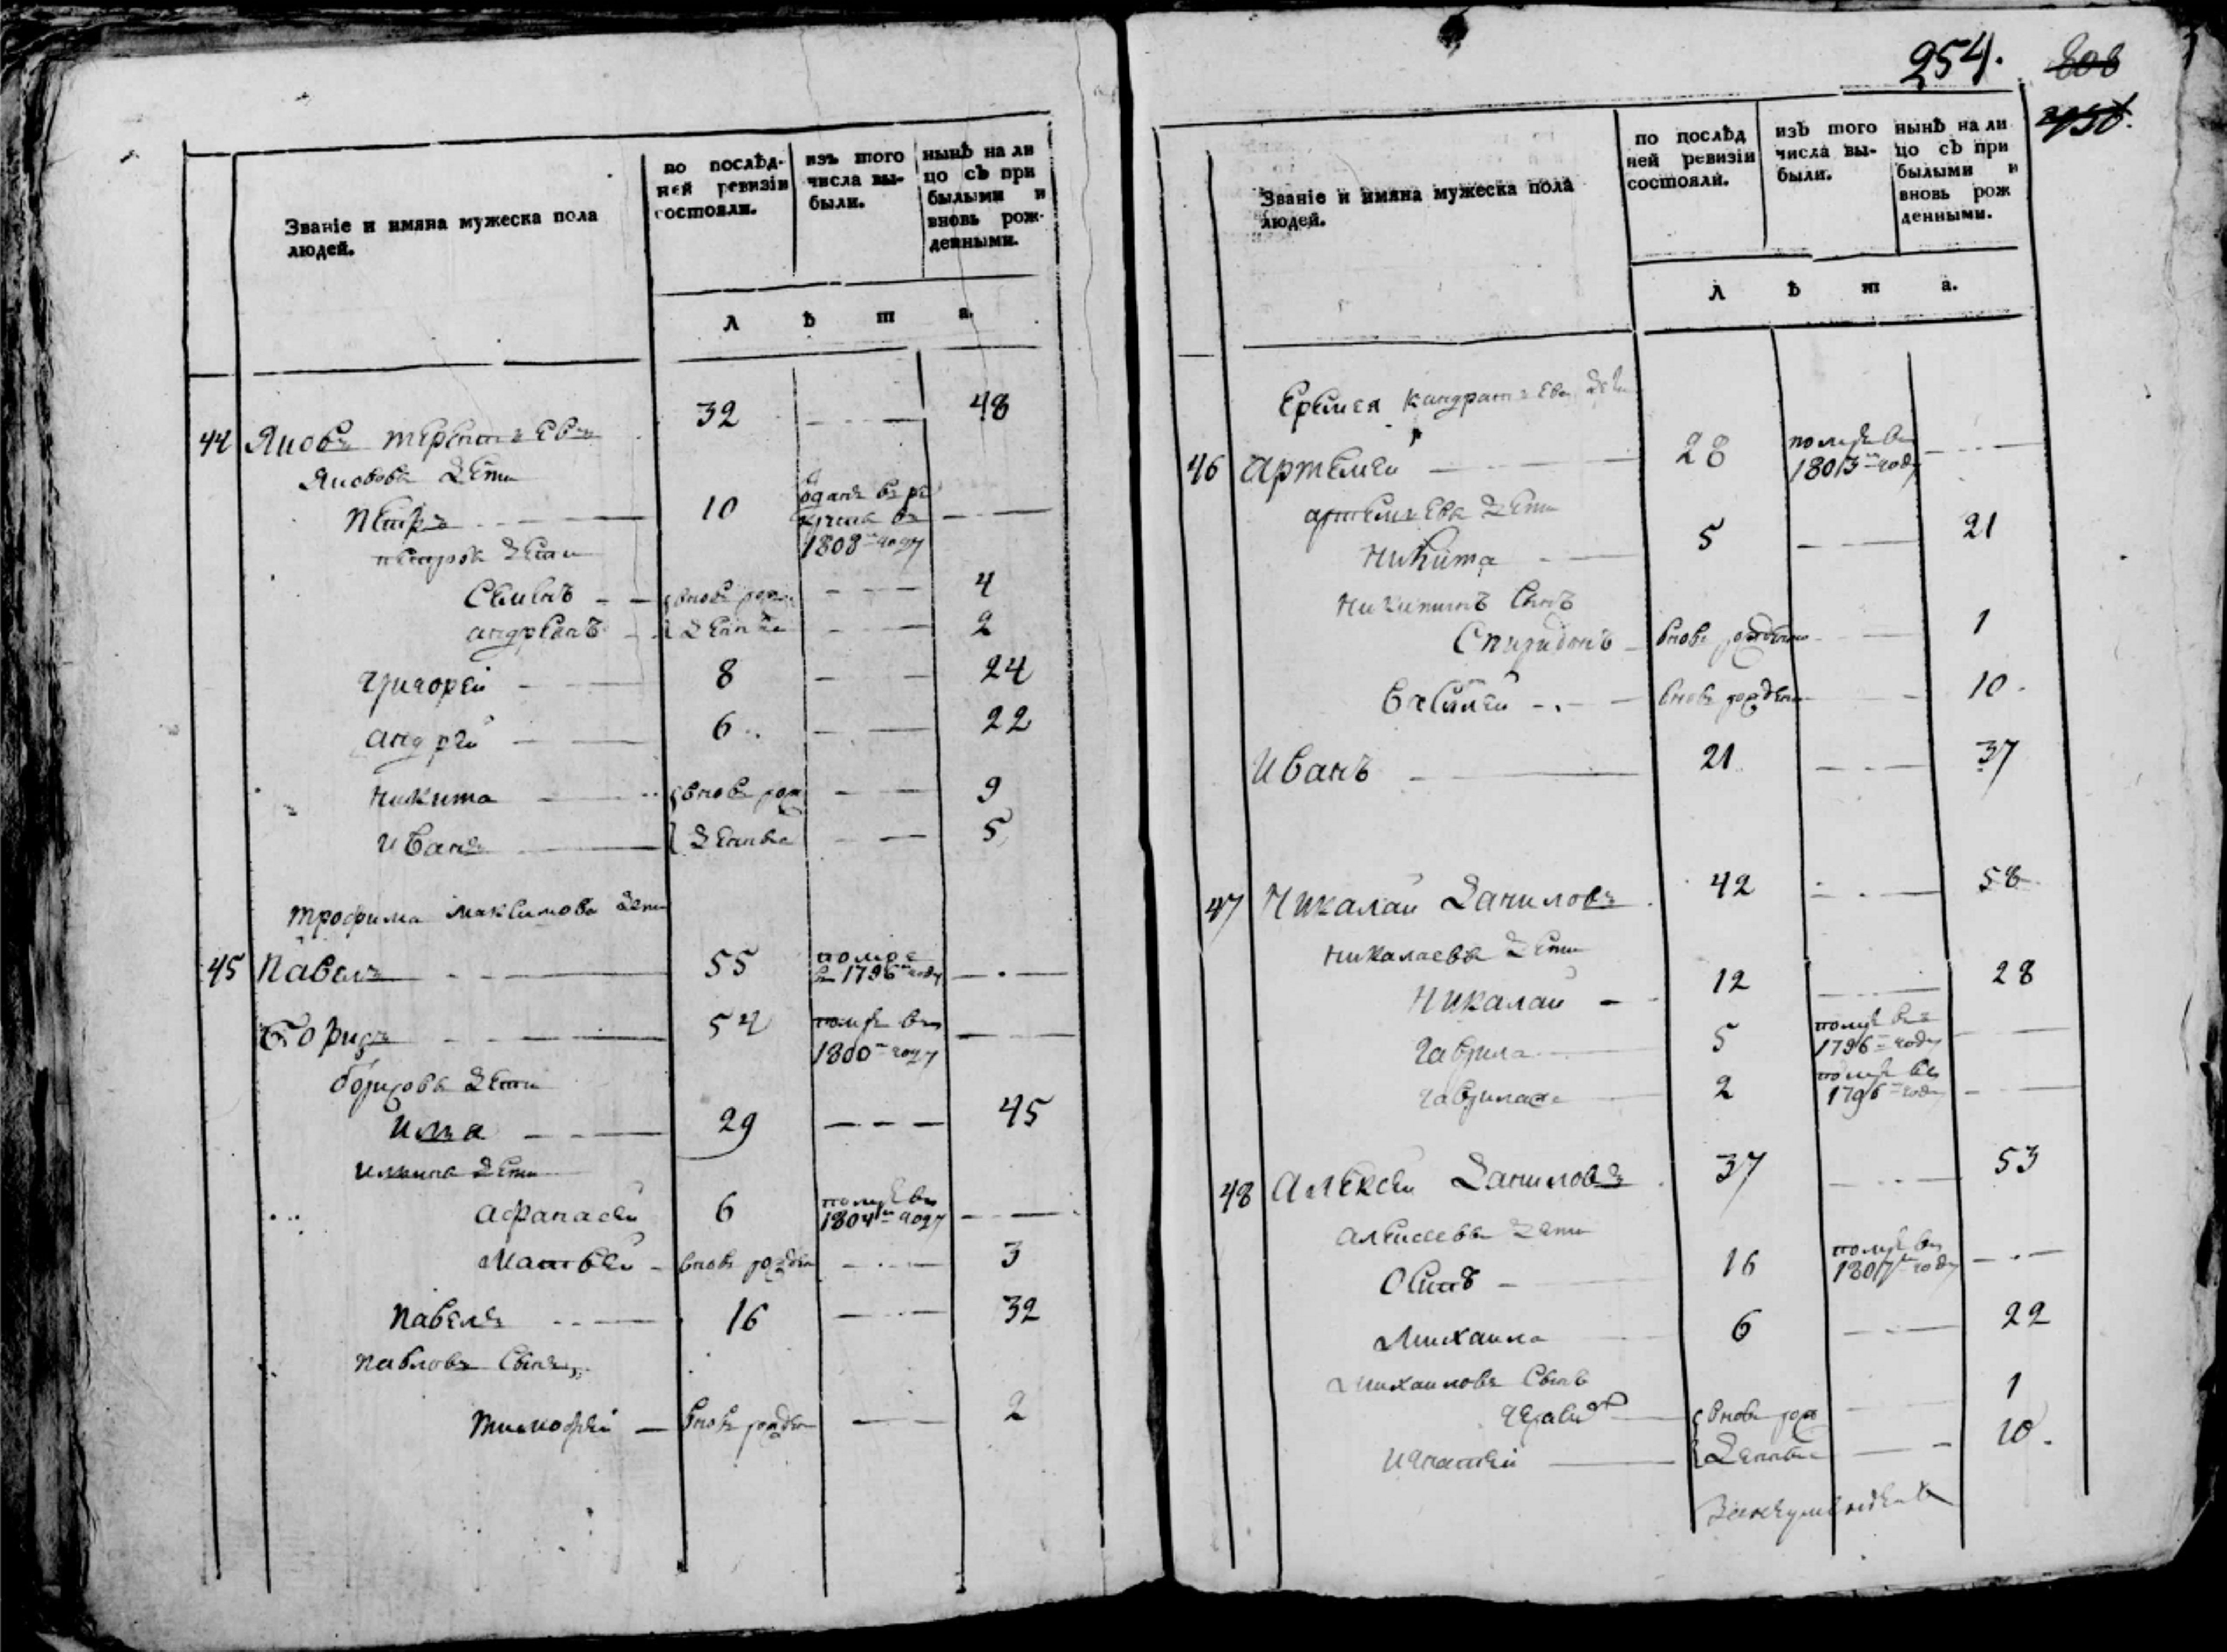 Званіе и имяна мужеска пола
людей.
по послѣд-
ней ревизіи
состояли.
изъ того
числа вы-
были.
нынѣ на ли
цо съ при
былыми и
вновь рож-
денными.
л ѣ т а.
44 Яковъ терентьевъ 32 48
Яковова дети
Петръ 10 отданъ в ре
круты въ
1808м году
петрова дети
Семенъ вновь рож 4
андреянъ денные 2
григорей 8 24
андрей 6 22
никита вновь рож 9
иванъ денные 5
трофима максимова дети
45 Павелъ 55 помре
въ 1796м году
Борисъ 54 помре въ
1800м году
борисова дети
илья 29 45
ильина дети
афанасей 6 помре въ
1804м году
Матвей вновь рожден 3
павелъ 16 32
павловъ сынъ
тимофей вновь рожден 2
254.
Званіе и имяна мужеска пола
людей.
по послѣд
ней ревизіи
состояли.
изъ того
числа вы-
были.
нынѣ на ли
цо съ при
былыми и
вновь рож
денными.
л ѣ т а.
Еремея кандратьева дети
46 артемей 28 помре въ
1803м году
артемьева дети
никита 5 21
никитинъ сынъ
Спиридонъ вновь рожденъ 1
василей вновь рожден 10
иванъ 21 37
47 Николай даниловъ 42 58
николаева дети
николай 12 28
гаврила 5 помре въ
1796м году
гаврила 2 помре въ
1796м году
48 алексей даниловъ 37 53
алексеева дети
осипъ 16 помре въ
1807м году
михаила 6 22
михаиловъ сынъ
вновь рож 1
игнатей денные 10